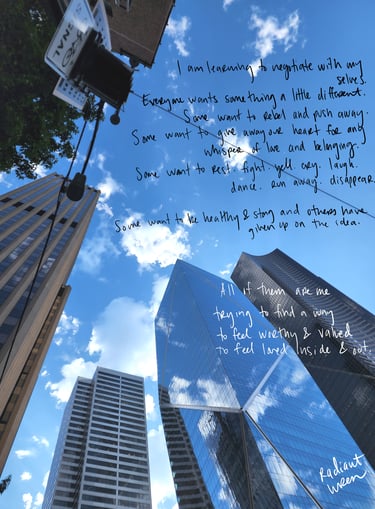 I am learning to negotiate with my
selves.
Everyone wants something a little different.
Some want to rebel and push away.
Some want to give away our heart for any
whisper of love and belonging.
Some want to rest. fight. yell. cry. laugh.
dance. run away. disappear.
Some want to be healthy & strong and others have
given up on the idea.
All of them are me
trying to find a way
to feel worthy & valued
to feel loved inside & out.
Radiant
Wren